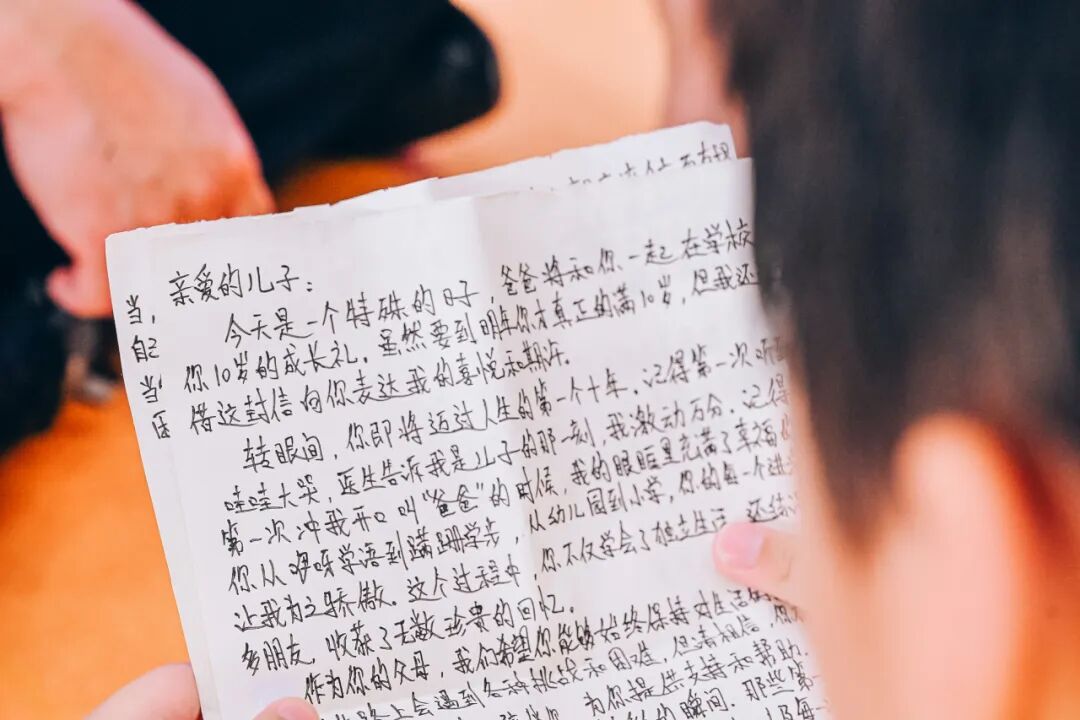 亲爱的儿子:
今天是一个特殊的日子,爸爸将和你一起在学校
你10岁的成长礼。虽然要到明年你才真正的满10岁,但我还
借这封信向你表达我的喜悦和期许。
转眼间,你即将迈过人生的第一个十年。记得第一次听
哇哇大哭,医生告诉我是儿子的那一刻,我激动万分。记得
第一次冲我开口叫“爸爸”的时候,我的眼眶里充满了幸福
你从咿呀学语到蹒跚学步,从幼儿园到小学,你的每一个进
让我为之骄傲。这个过程中,你不仅学会了独立生活,还结
多朋友,收获了无数珍贵的回忆。
作为你的父母,我们希望你能够始终保持对生活
路上会遇到各种挑战和困难,但请相信,
为你提供支持和帮助。
的瞬间。那些第一
当,
自己
当
医